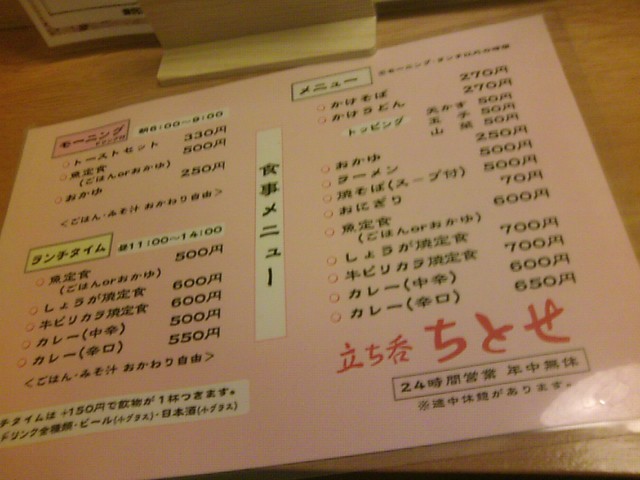 モーニング
朝6:00〜9:00
トーストセット 330円
魚定食 500円
(ごはんorおかゆ)
おかゆ 250円
<ごはん・みそ汁 おかわり自由>
ランチタイム
昼11:00〜14:00
魚定食 500円
(ごはんorおかゆ)
しょうが焼定食 600円
牛ピリカラ焼定食 600円
カレー(中辛) 500円
カレー(辛口) 550円
<ごはん・みそ汁 おかわり自由>
チタイムは+150円で飲物が1杯つきます。
ドリンク全種類・ビール(小グラス)・日本酒(小グラス)
食事メニュー
メニュー
かけそば 270円
かけうどん 270円
トッピング 天かす 50円
玉子 50円
山菜 50円
おかゆ 250円
ラーメン 500円
焼そば(スープ付) 500円
おにぎり 70円
魚定食 600円
(ごはんorおかゆ)
しょうが焼定食 700円
牛ピリカラ焼定食 700円
カレー(中辛) 600円
カレー(辛口) 650円
立ち呑 ちとせ
24時間営業 年中無休
※途中休憩があります。